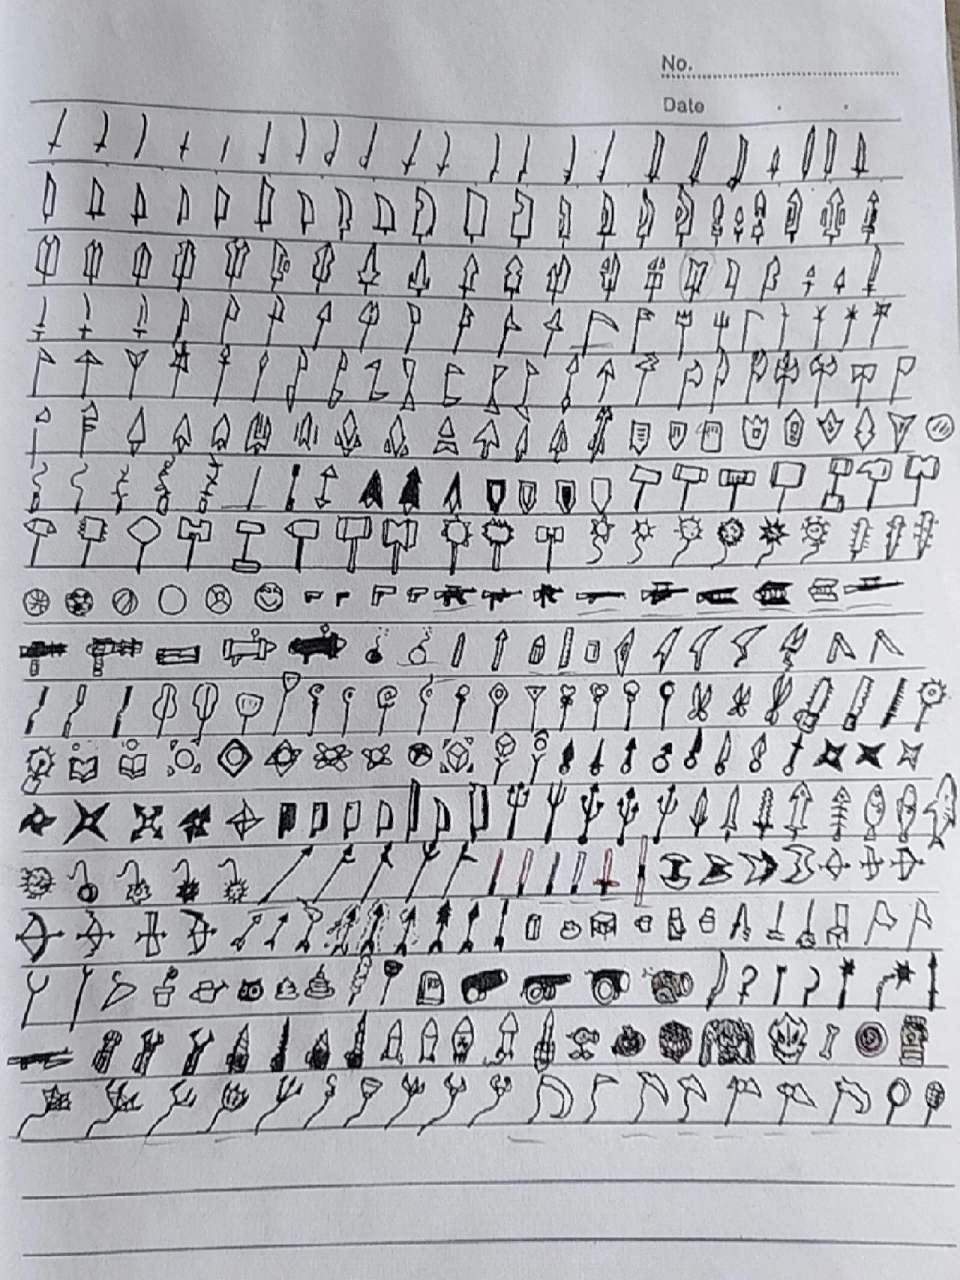 No.
Date